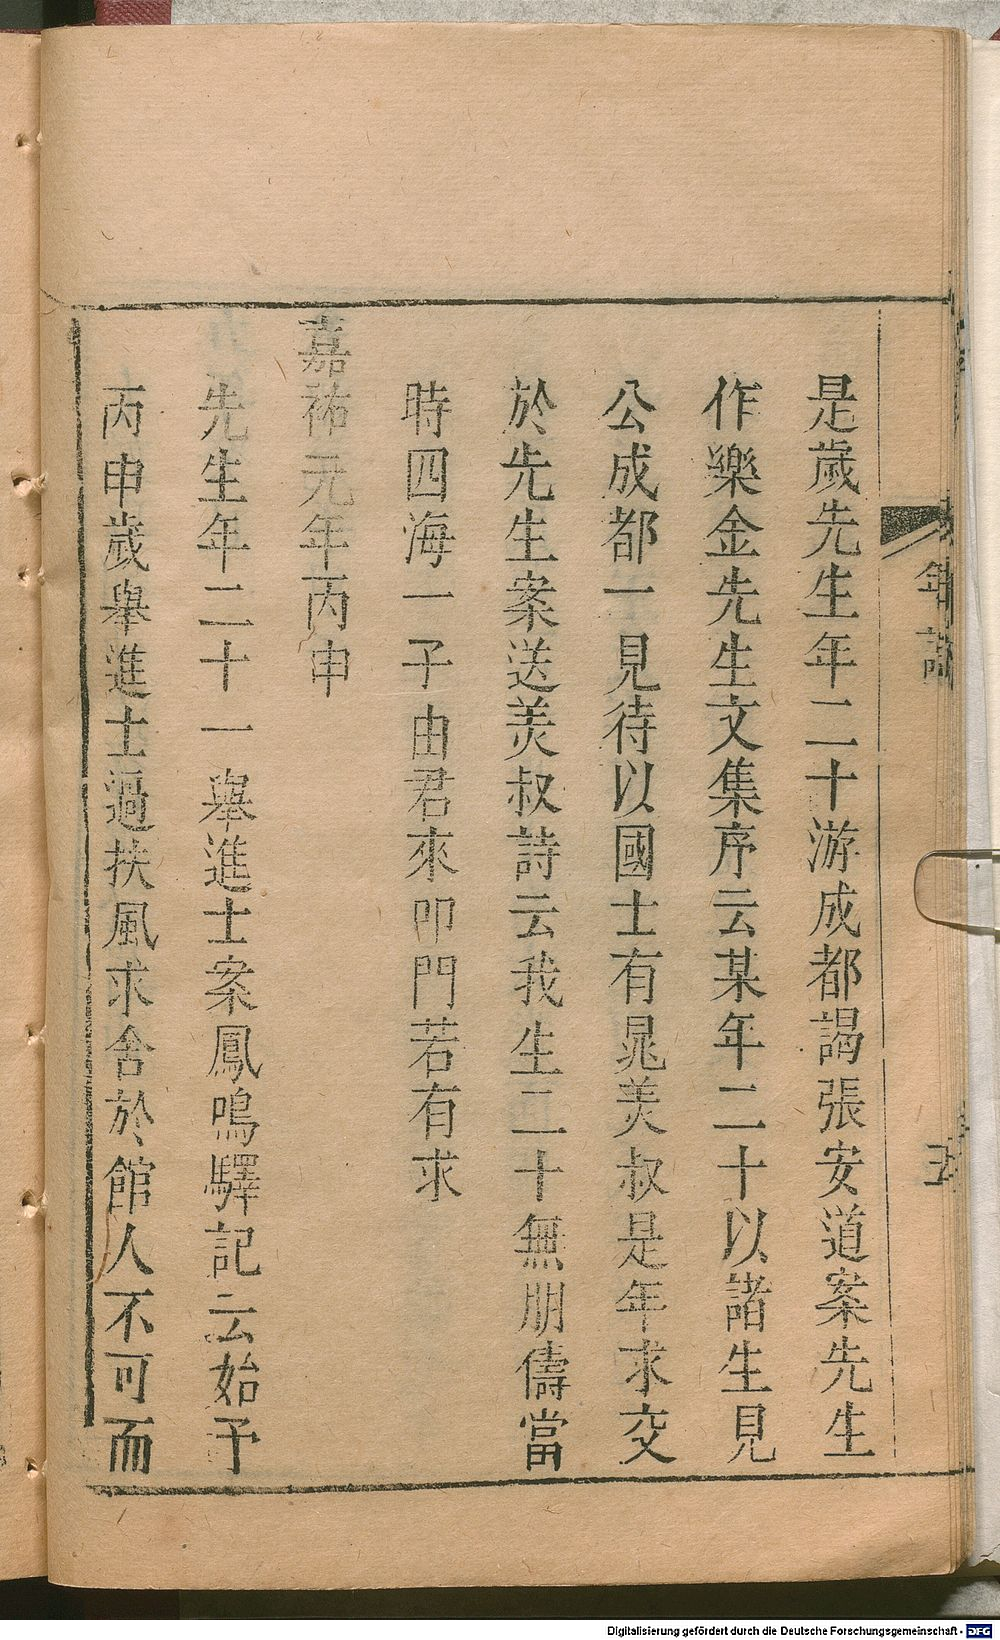 年譜
五
是歲先生年二十游成都謁張安道案先生
作樂全先生文集序云某年二十以諸生見
公成都一見待以國士有晁美叔是年求交
於先生案送美叔詩云我生二十無朋儔當
時四海一子由君來叩門若有求
嘉祐元年丙申
先生年二十一舉進士案鳳鳴驛記云始予
丙申歲舉進士過扶風求舍於館人不可而
Digitalisierung gefördert durch die Deutsche Forschungsgemeinschaft - DFG